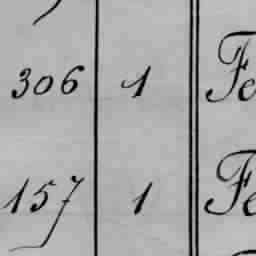 306 1 Fe
157 1 Fe